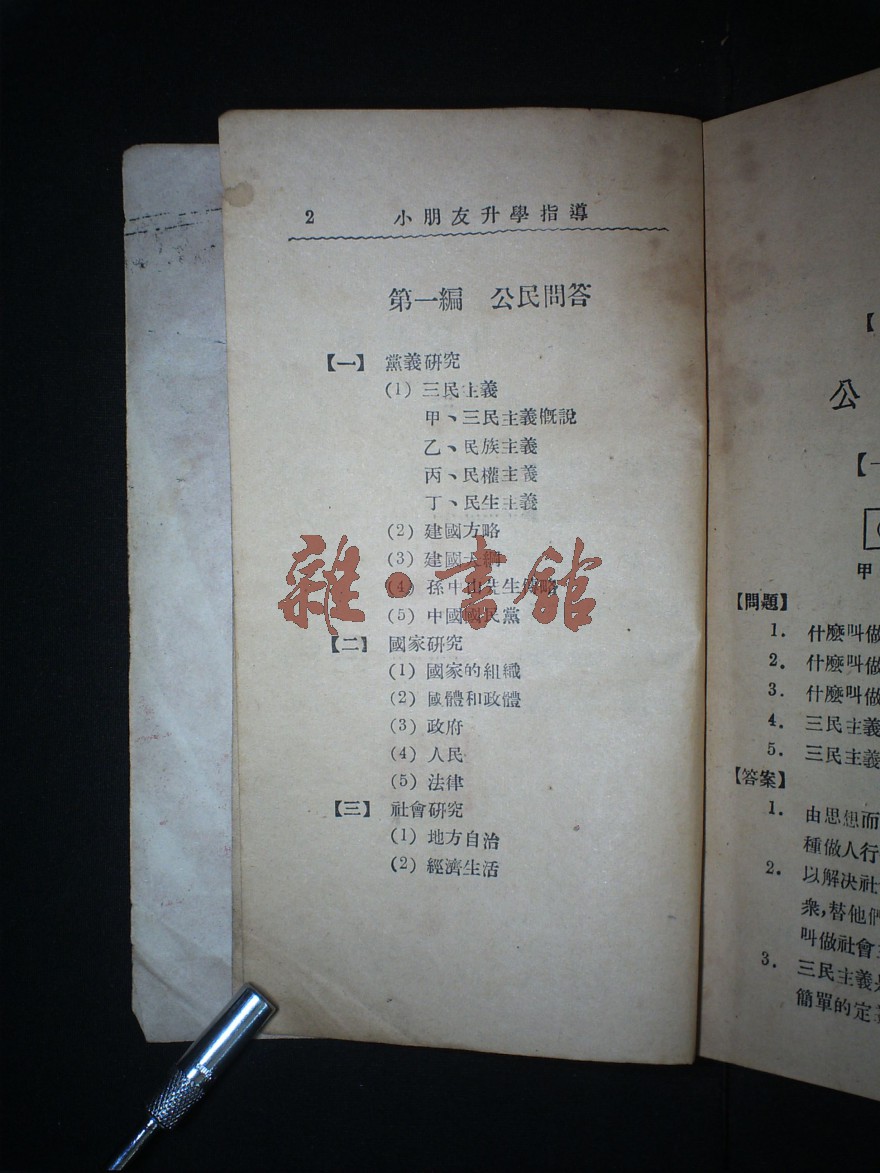 2 小朋友升學指導
第一編 公民問答
【一】 黨義研究
(1) 三民主義
甲、三民主義概說
乙、民族主義
丙、民權主義
丁、民生主義
(2) 建國方略
(3) 建國大綱
(4) 孫中山先生傳略
(5) 中國國民黨
【二】 國家研究
(1) 國家的組織
(2) 國體和政體
(3) 政府
(4) 人民
(5) 法律
【三】 社會研究
(1) 地方自治
(2) 經濟生活
雜·書館
【
公
【一
甲
【問題】
1. 什麼叫做
2. 什麼叫做
3. 什麼叫做
4. 三民主義
5. 三民主義
【答案】
1. 由思想而
種做人行
2. 以解決社
衆,替他們
叫做社會主
3. 三民主義是
簡單的定義